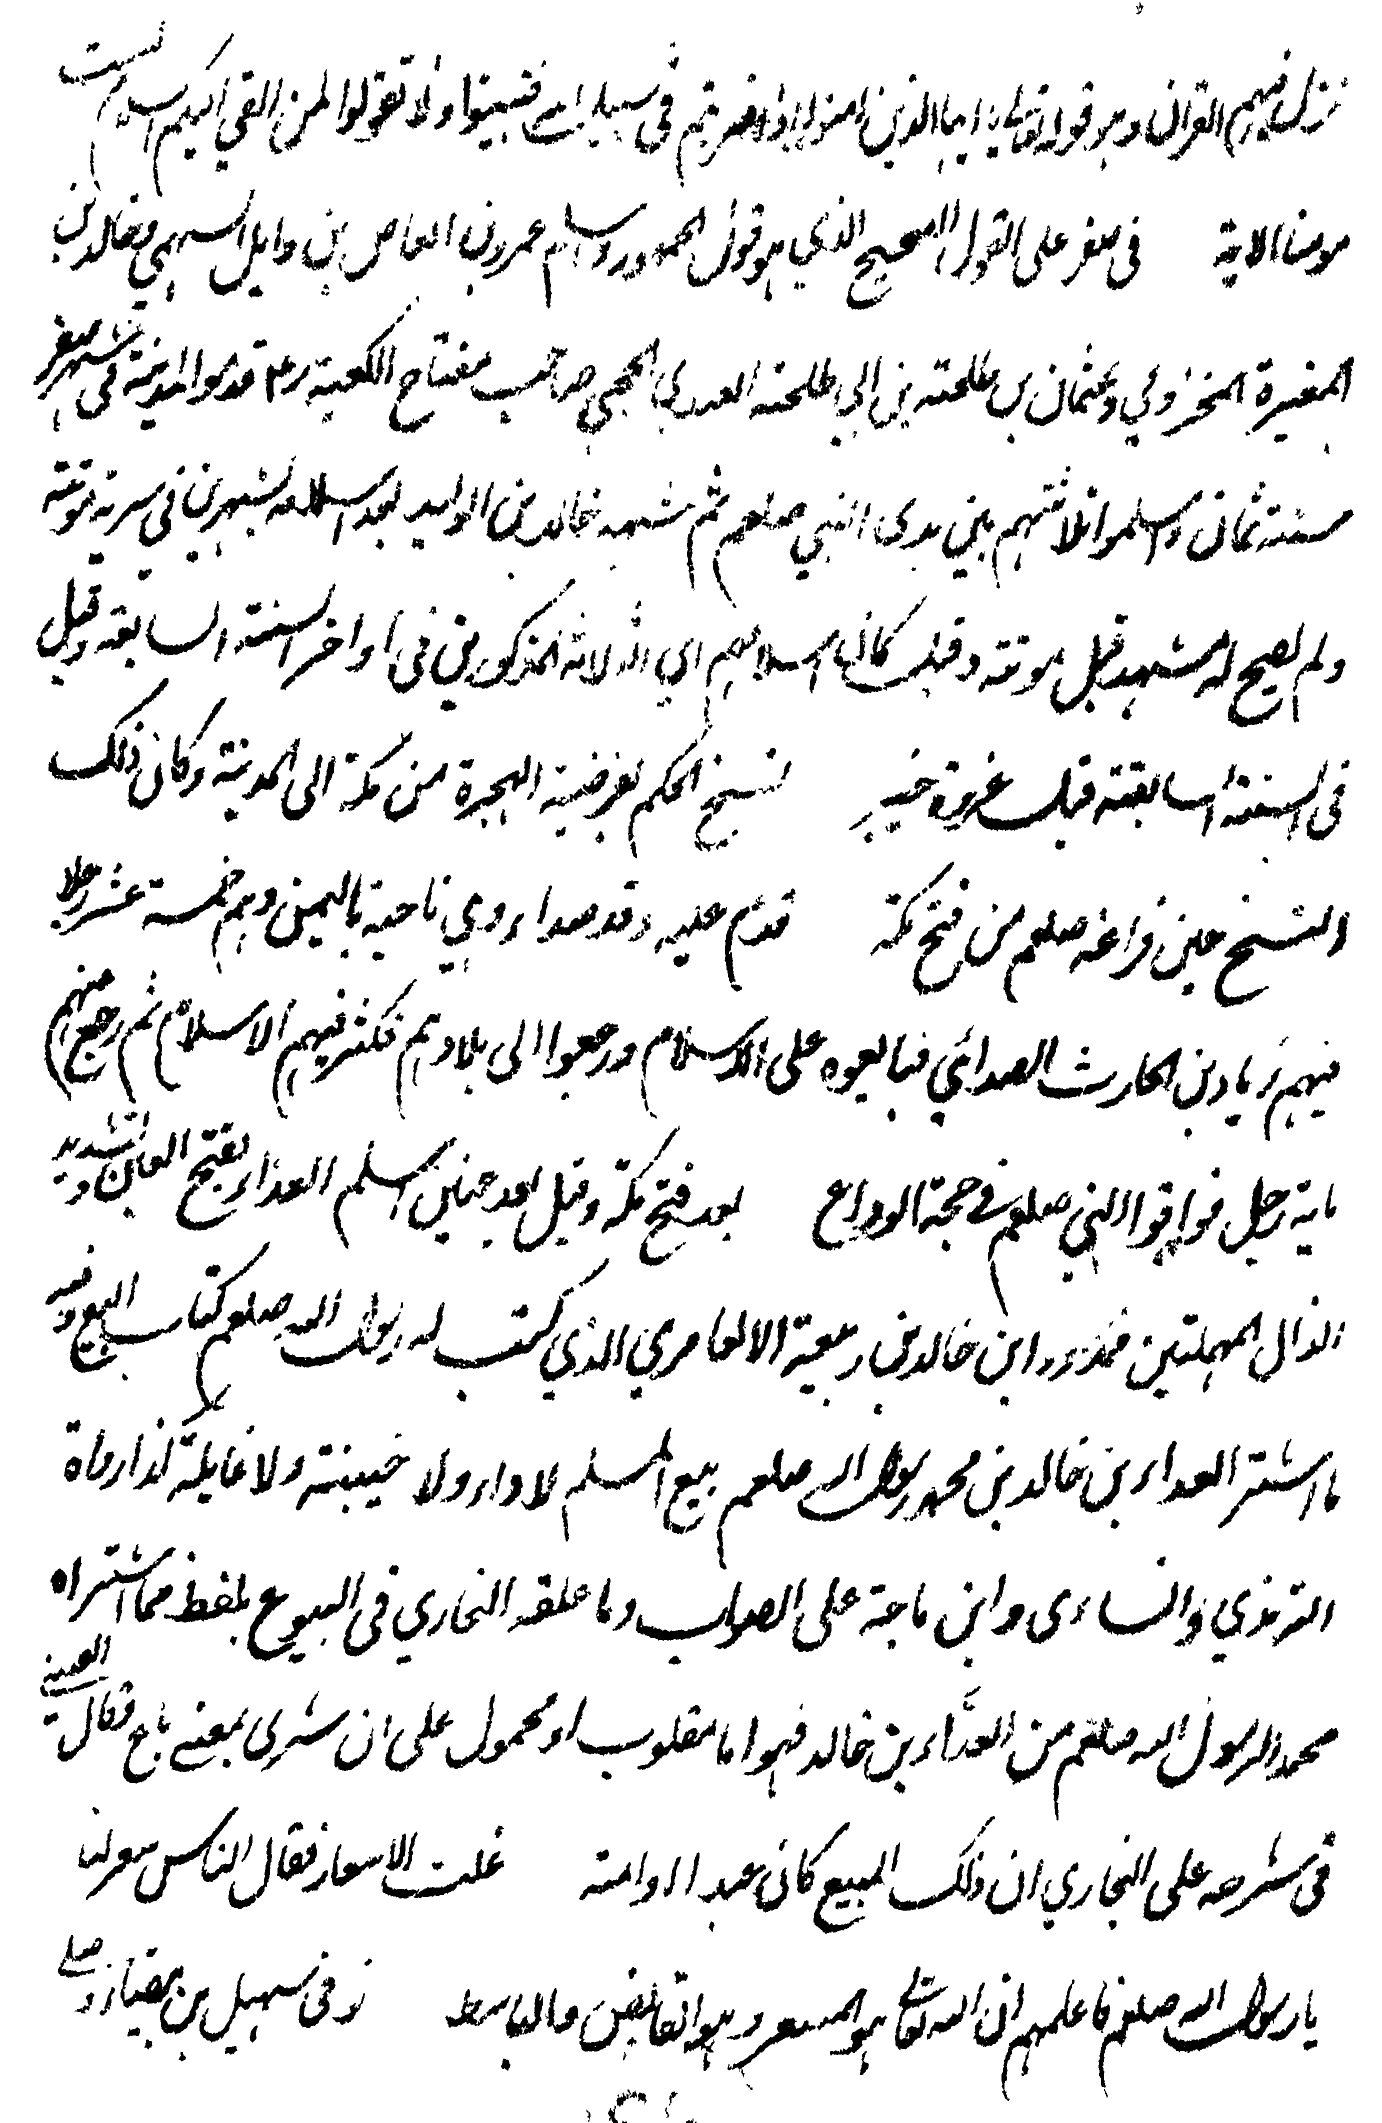 نزل فيهم القران وهو قوله تعالى يا ايها الذين امنوا اذا ضربتم في سبيل الله فتبينوا ولا تقولوا لمن القي اليكم السلام لست
مومنا الاية في صفر على القول الصحيح الذي هو قول الجمهور واسلم عمرو بن العاص بن وايل السهمي وخالد بن
المغيرة المخزومي وعثمان بن طلحته بن ابي طلحته العبدري الحجبي صاحب مفتاح الكعبة رم قدموا المدينة في شهر صفر
سنته ثمان واسلموا ثلاثتهم بين يدى النبي صلعم ثم شهد خالد بن الوليد بعد اسلامه بشهرين في سرية موتته
ولم يصح له مشهد قبل موتته وقيل كان اسلامهم اي الثلاثة المذكورين في اواخر السنته السابعه وقيل
في السنته السابعته قبل غزوة خيبر نسخ الحكم بفرضية الهجرة من مكة الى المدينة وكان ذلك
النسخ حين فراغه صلعم من فتح مكة قدم عليه وفد صداء وهي ناحية باليمن وهم خمسة عشر رجلا
فيهم زياد بن الحارث الصدائي فبايعوه على الاسلام ورجعوا الى بلادهم فكثر فيهم الاسلام ثم رجع منهم
ماية رجل فوافقوا النبي صلعم في حجة الوداع بعد فتح مكة وقيل بعد حنين اسلم العداء بفتح العين وتشديد
الدال المهملتين ممدود ابن خالد بن ربيعة العامري الذي كتب له رسول الله صلعم كتاب البيع وفيه
ما اشتر العداء بن خالد بن محمد رسول الله صلعم بيع المسلم لا داء ولا خيبنته ولا غايلة كذا رواة
الترمذي والنساءى وابن ماجة على الصواب وما علقه البخاري في البيوع بلفظ مما اشتراه
محمد رسول الله صلعم من العداء بن خالد فهو اما مقلوب او محمول على ان شرى بمعنى باع فقال العيني
في شرحه على البخاري ان ذلك المبيع كان عبدا او امته غلت الاسعار فقال الناس سعر لنا
يا رسول الله صلعم فاعلمهم ان الله تعالى هو المسعر وهو القابض والباسط توفي سهيل بن بيضاء وصلى